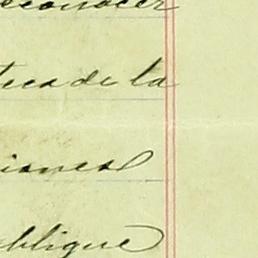 econocer
teca de la
iones
ublique